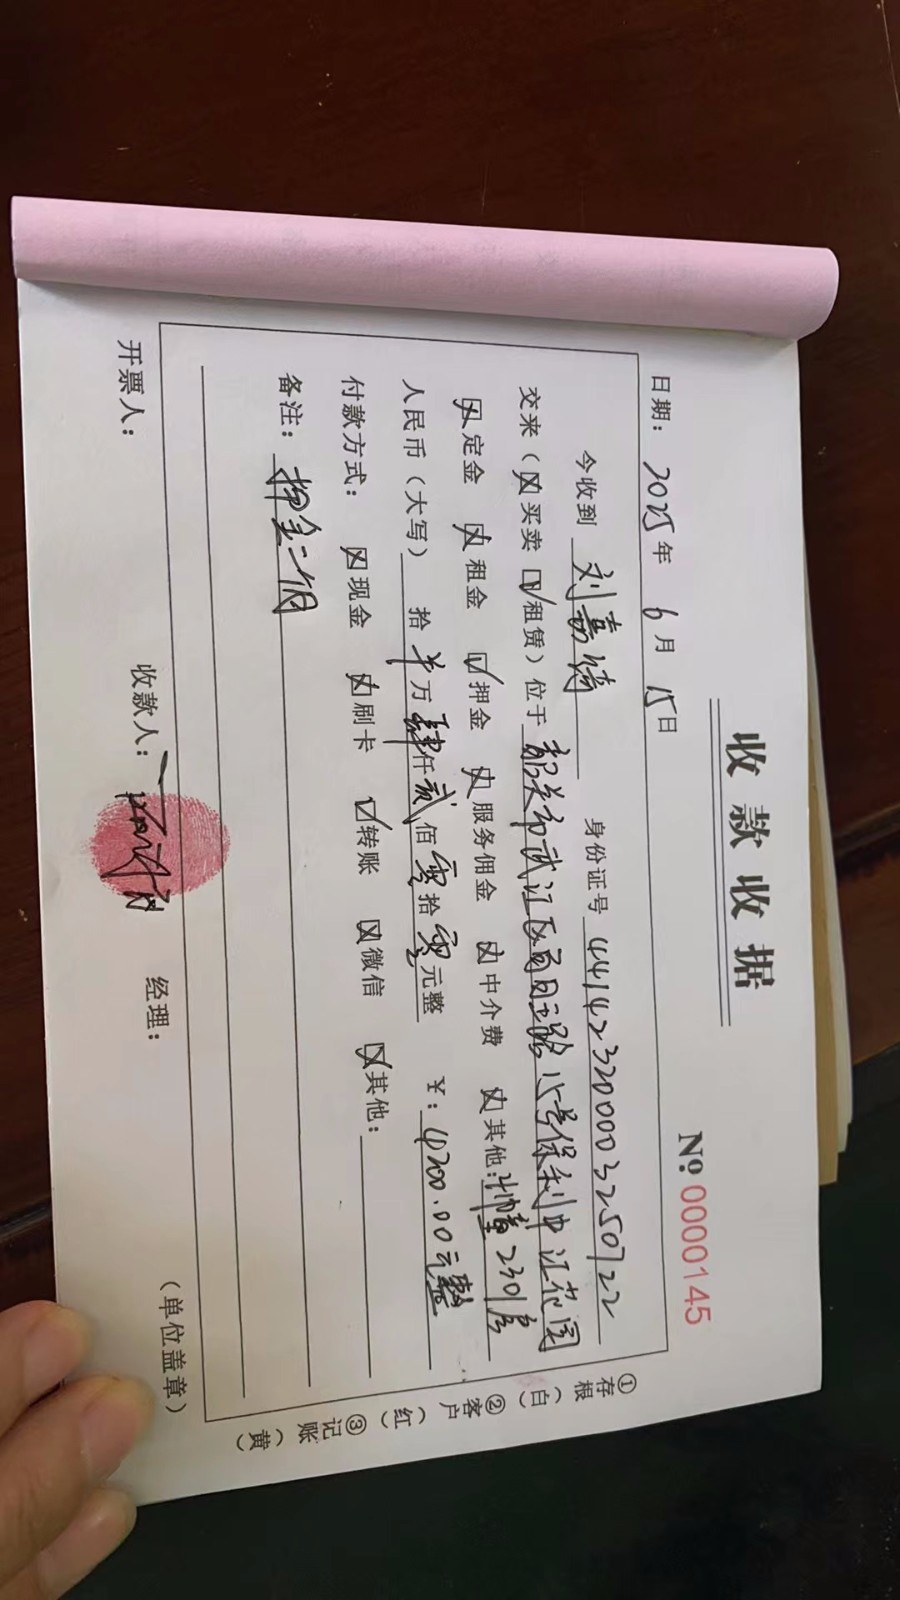 收款收据
№ 0000145
日期: 2025年 6月 15日
今收到 刘嘉绮 身份证号 441423200003250722
交来(☒买卖 ☑租赁)位于 韶关市武江区百旺路15号保利中江花园
☒定金 ☒租金 ☑押金 ☒服务佣金 ☒中介费 ☒其他: 2301房
人民币(大写) 拾 万 肆仟贰佰零拾零元整 ¥: 4200.00元整
付款方式: ☒现金 ☒刷卡 ☑转账 ☒微信 ☒其他:
备注: 押金二个月
开票人: 收款人: 经理: (单位盖章)
①存根(白) ②客户(红) ③记账(黄)